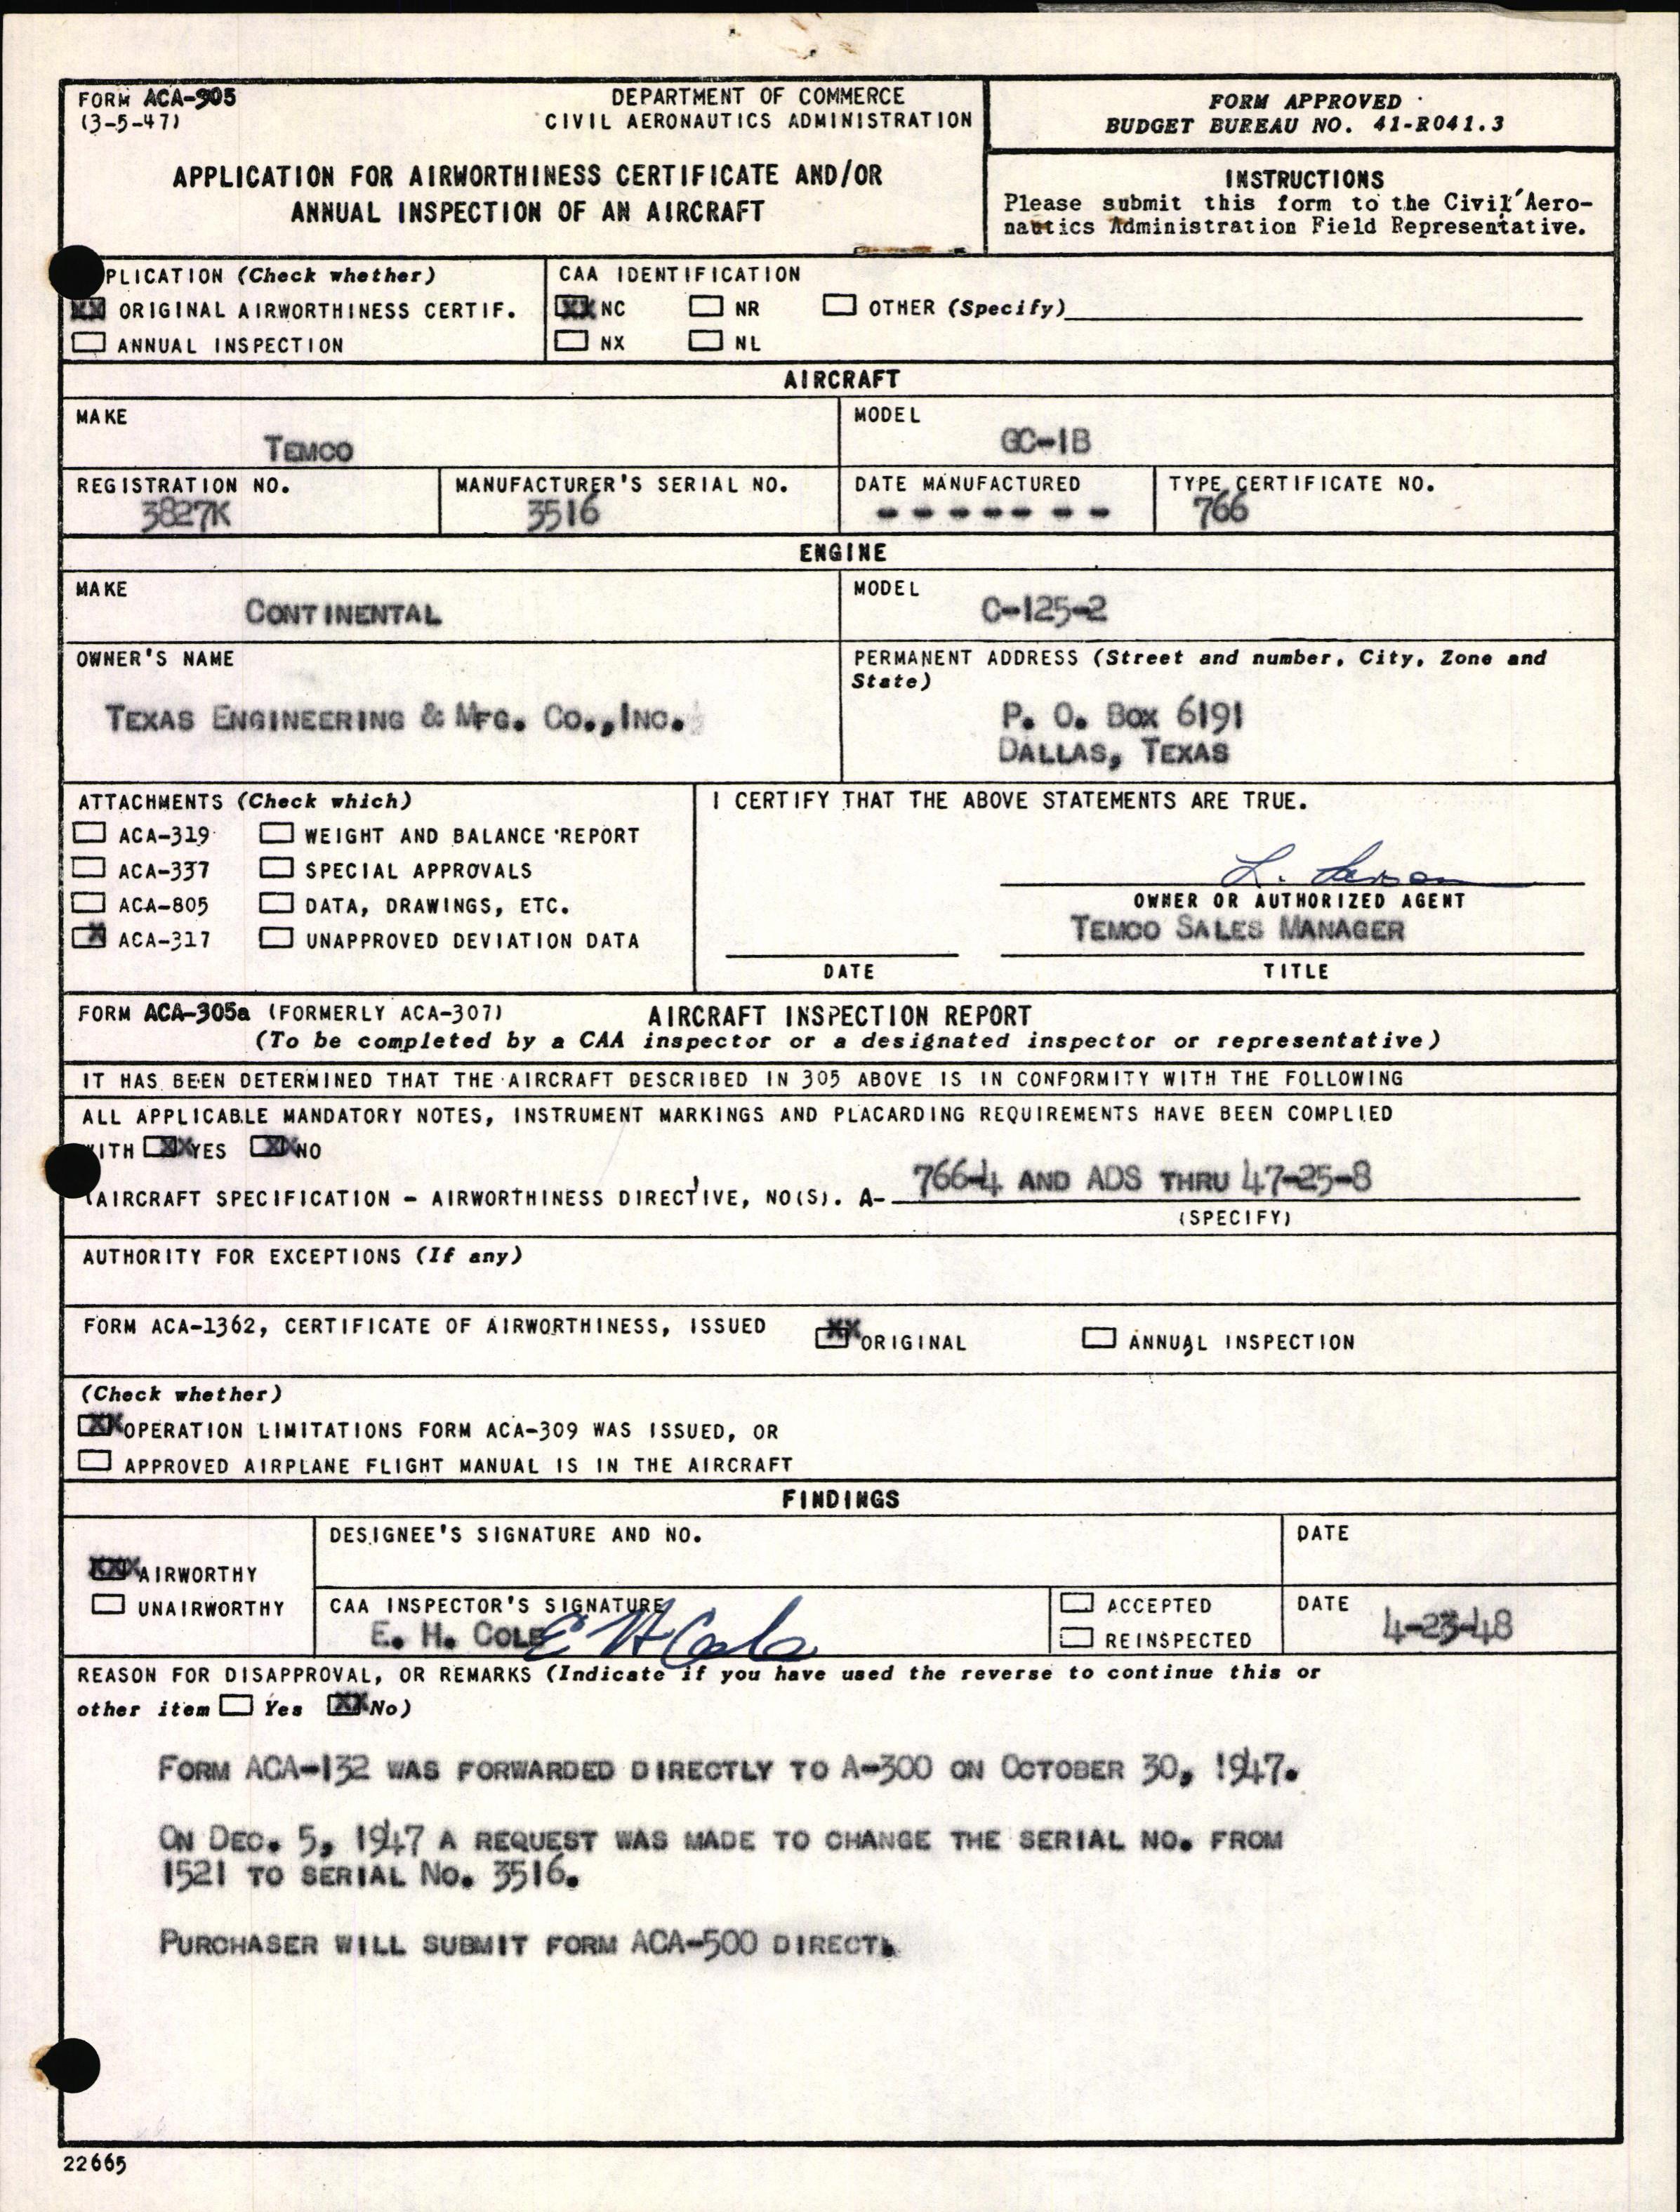 FORM ACA-305
(3-5-47)
DEPARTMENT OF COMMERCE
CIVIL AERONAUTICS ADMINISTRATION
APPLICATION FOR AIRWORTHINESS CERTIFICATE AND/OR
ANNUAL INSPECTION OF AN AIRCRAFT
FORM APPROVED
BUDGET BUREAU NO. 41-R041.3
INSTRUCTIONS
Please submit this form to the Civil Aero-
nautics Administration Field Representative.
PLICATION (Check whether)
XX ORIGINAL AIRWORTHINESS CERTIF.
ANNUAL INSPECTION
CAA IDENTIFICATION
XX NC NR OTHER (Specify)
NX NL
AIRCRAFT
MAKE
TEMCO
MODEL
GC-1B
REGISTRATION NO.
3827K
MANUFACTURER'S SERIAL NO.
3516
DATE MANUFACTURED
- - - - - - -
TYPE CERTIFICATE NO.
766
ENGINE
MAKE
CONTINENTAL
MODEL
C-125-2
OWNER'S NAME
TEXAS ENGINEERING & MFG. CO., INC.
PERMANENT ADDRESS (Street and number, City, Zone and
State)
P. O. BOX 6191
DALLAS, TEXAS
ATTACHMENTS (Check which)
ACA-319 WEIGHT AND BALANCE REPORT
ACA-337 SPECIAL APPROVALS
ACA-805 DATA, DRAWINGS, ETC.
X ACA-317 UNAPPROVED DEVIATION DATA
I CERTIFY THAT THE ABOVE STATEMENTS ARE TRUE.
L.
OWNER OR AUTHORIZED AGENT
TEMCO SALES MANAGER
DATE TITLE
FORM ACA-305a (FORMERLY ACA-307) AIRCRAFT INSPECTION REPORT
(To be completed by a CAA inspector or a designated inspector or representative)
IT HAS BEEN DETERMINED THAT THE AIRCRAFT DESCRIBED IN 305 ABOVE IS IN CONFORMITY WITH THE FOLLOWING
ALL APPLICABLE MANDATORY NOTES, INSTRUMENT MARKINGS AND PLACARDING REQUIREMENTS HAVE BEEN COMPLIED
WITH XX YES XX NO
(AIRCRAFT SPECIFICATION - AIRWORTHINESS DIRECTIVE, NO(S). A- 766-4 AND ADS THRU 47-25-8
(SPECIFY)
AUTHORITY FOR EXCEPTIONS (If any)
FORM ACA-1362, CERTIFICATE OF AIRWORTHINESS, ISSUED XX ORIGINAL ANNUAL INSPECTION
(Check whether)
XX OPERATION LIMITATIONS FORM ACA-309 WAS ISSUED, OR
APPROVED AIRPLANE FLIGHT MANUAL IS IN THE AIRCRAFT
FINDINGS
XXX AIRWORTHY
UNAIRWORTHY
DESIGNEE'S SIGNATURE AND NO.
DATE
CAA INSPECTOR'S SIGNATURE
E. H. COLE E H Cole
ACCEPTED
REINSPECTED
DATE
4-23-48
REASON FOR DISAPPROVAL, OR REMARKS (Indicate if you have used the reverse to continue this or
other item Yes XX No)
FORM ACA-132 WAS FORWARDED DIRECTLY TO A-300 ON OCTOBER 30, 1947.
ON DEC. 5, 1947 A REQUEST WAS MADE TO CHANGE THE SERIAL NO. FROM
1521 TO SERIAL NO. 3516.
PURCHASER WILL SUBMIT FORM ACA-500 DIRECT.
22665